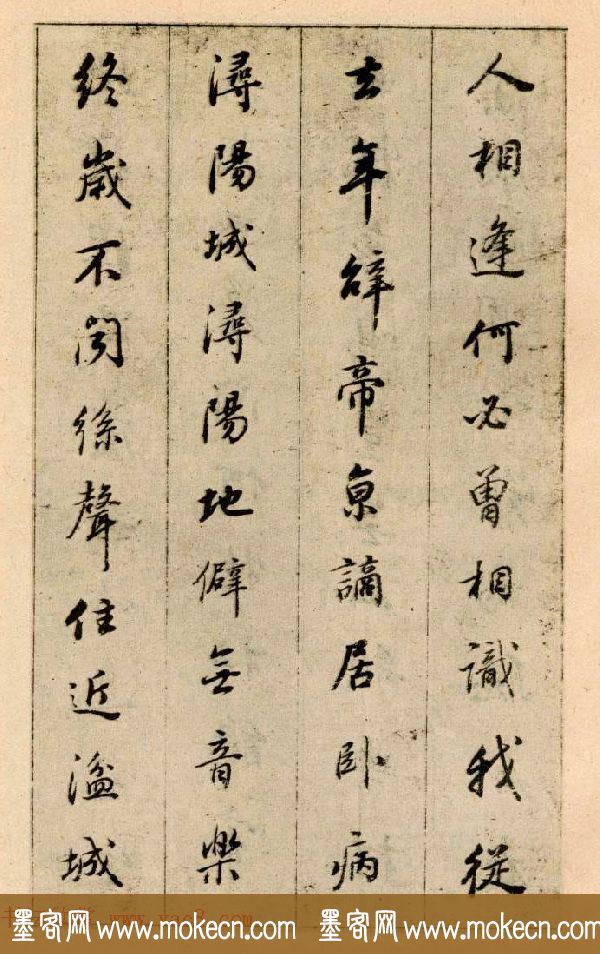 人相逢何必曾相識我從
去年辭帝京謫居卧病
潯陽城潯陽地僻無音樂
終歲不聞絲聲住近湓城
墨客网 www.mokecn.com 墨客网 www.mokecn.com